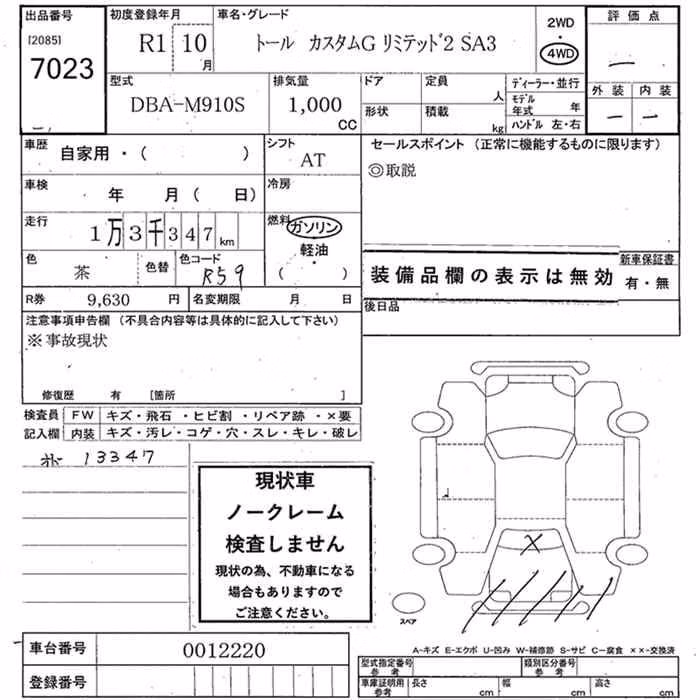 出品番号 初度登録年月 車名・グレード 2WD 評価点
[2085] 7023 R1 10月 トール カスタムG リミテッド2 SA3 4WD 一
型式 排気量 ドア 定員 人 ディーラー・並行 外装 内装
DBA-M910S 1,000 CC 形状 積載 kg モデル年式 年 一 一
ハンドル 左・右
車歴 自家用・( ) シフト AT セールスポイント (正常に機能するものに限ります)
◎取説
車検 年 月( 日) 冷房
走行 1万3千347km 燃料 ガソリン
軽油
( )
色 茶 色替 色コード R59 装備品欄の表示は無効 新車保証書
有・無
R券 9,630 円 名変期限 月 日 後日品
注意事項申告欄 (不具合内容等は具体的に記入して下さい)
※事故現状
修復歴 有 [箇所 ]
検査員 FW キズ・飛石 ・ヒビ割 ・リペア跡 ・×要
記入欄 内装 キズ・汚レ・コゲ・穴・スレ・キレ・破レ
13347
現状車
ノークレーム
検査しません
現状の為、不動車になる
場合もありますので
ご注意ください。
スペア
A-キズ E-エクボ U-凹み W-補修跡 S-サビ C-腐食 ××-交換済
車台番号 0012220
登録番号
型式指定番号 参考 類別区分番号 参考
車庫証明用 参考 長さ cm 幅 cm 高さ cm